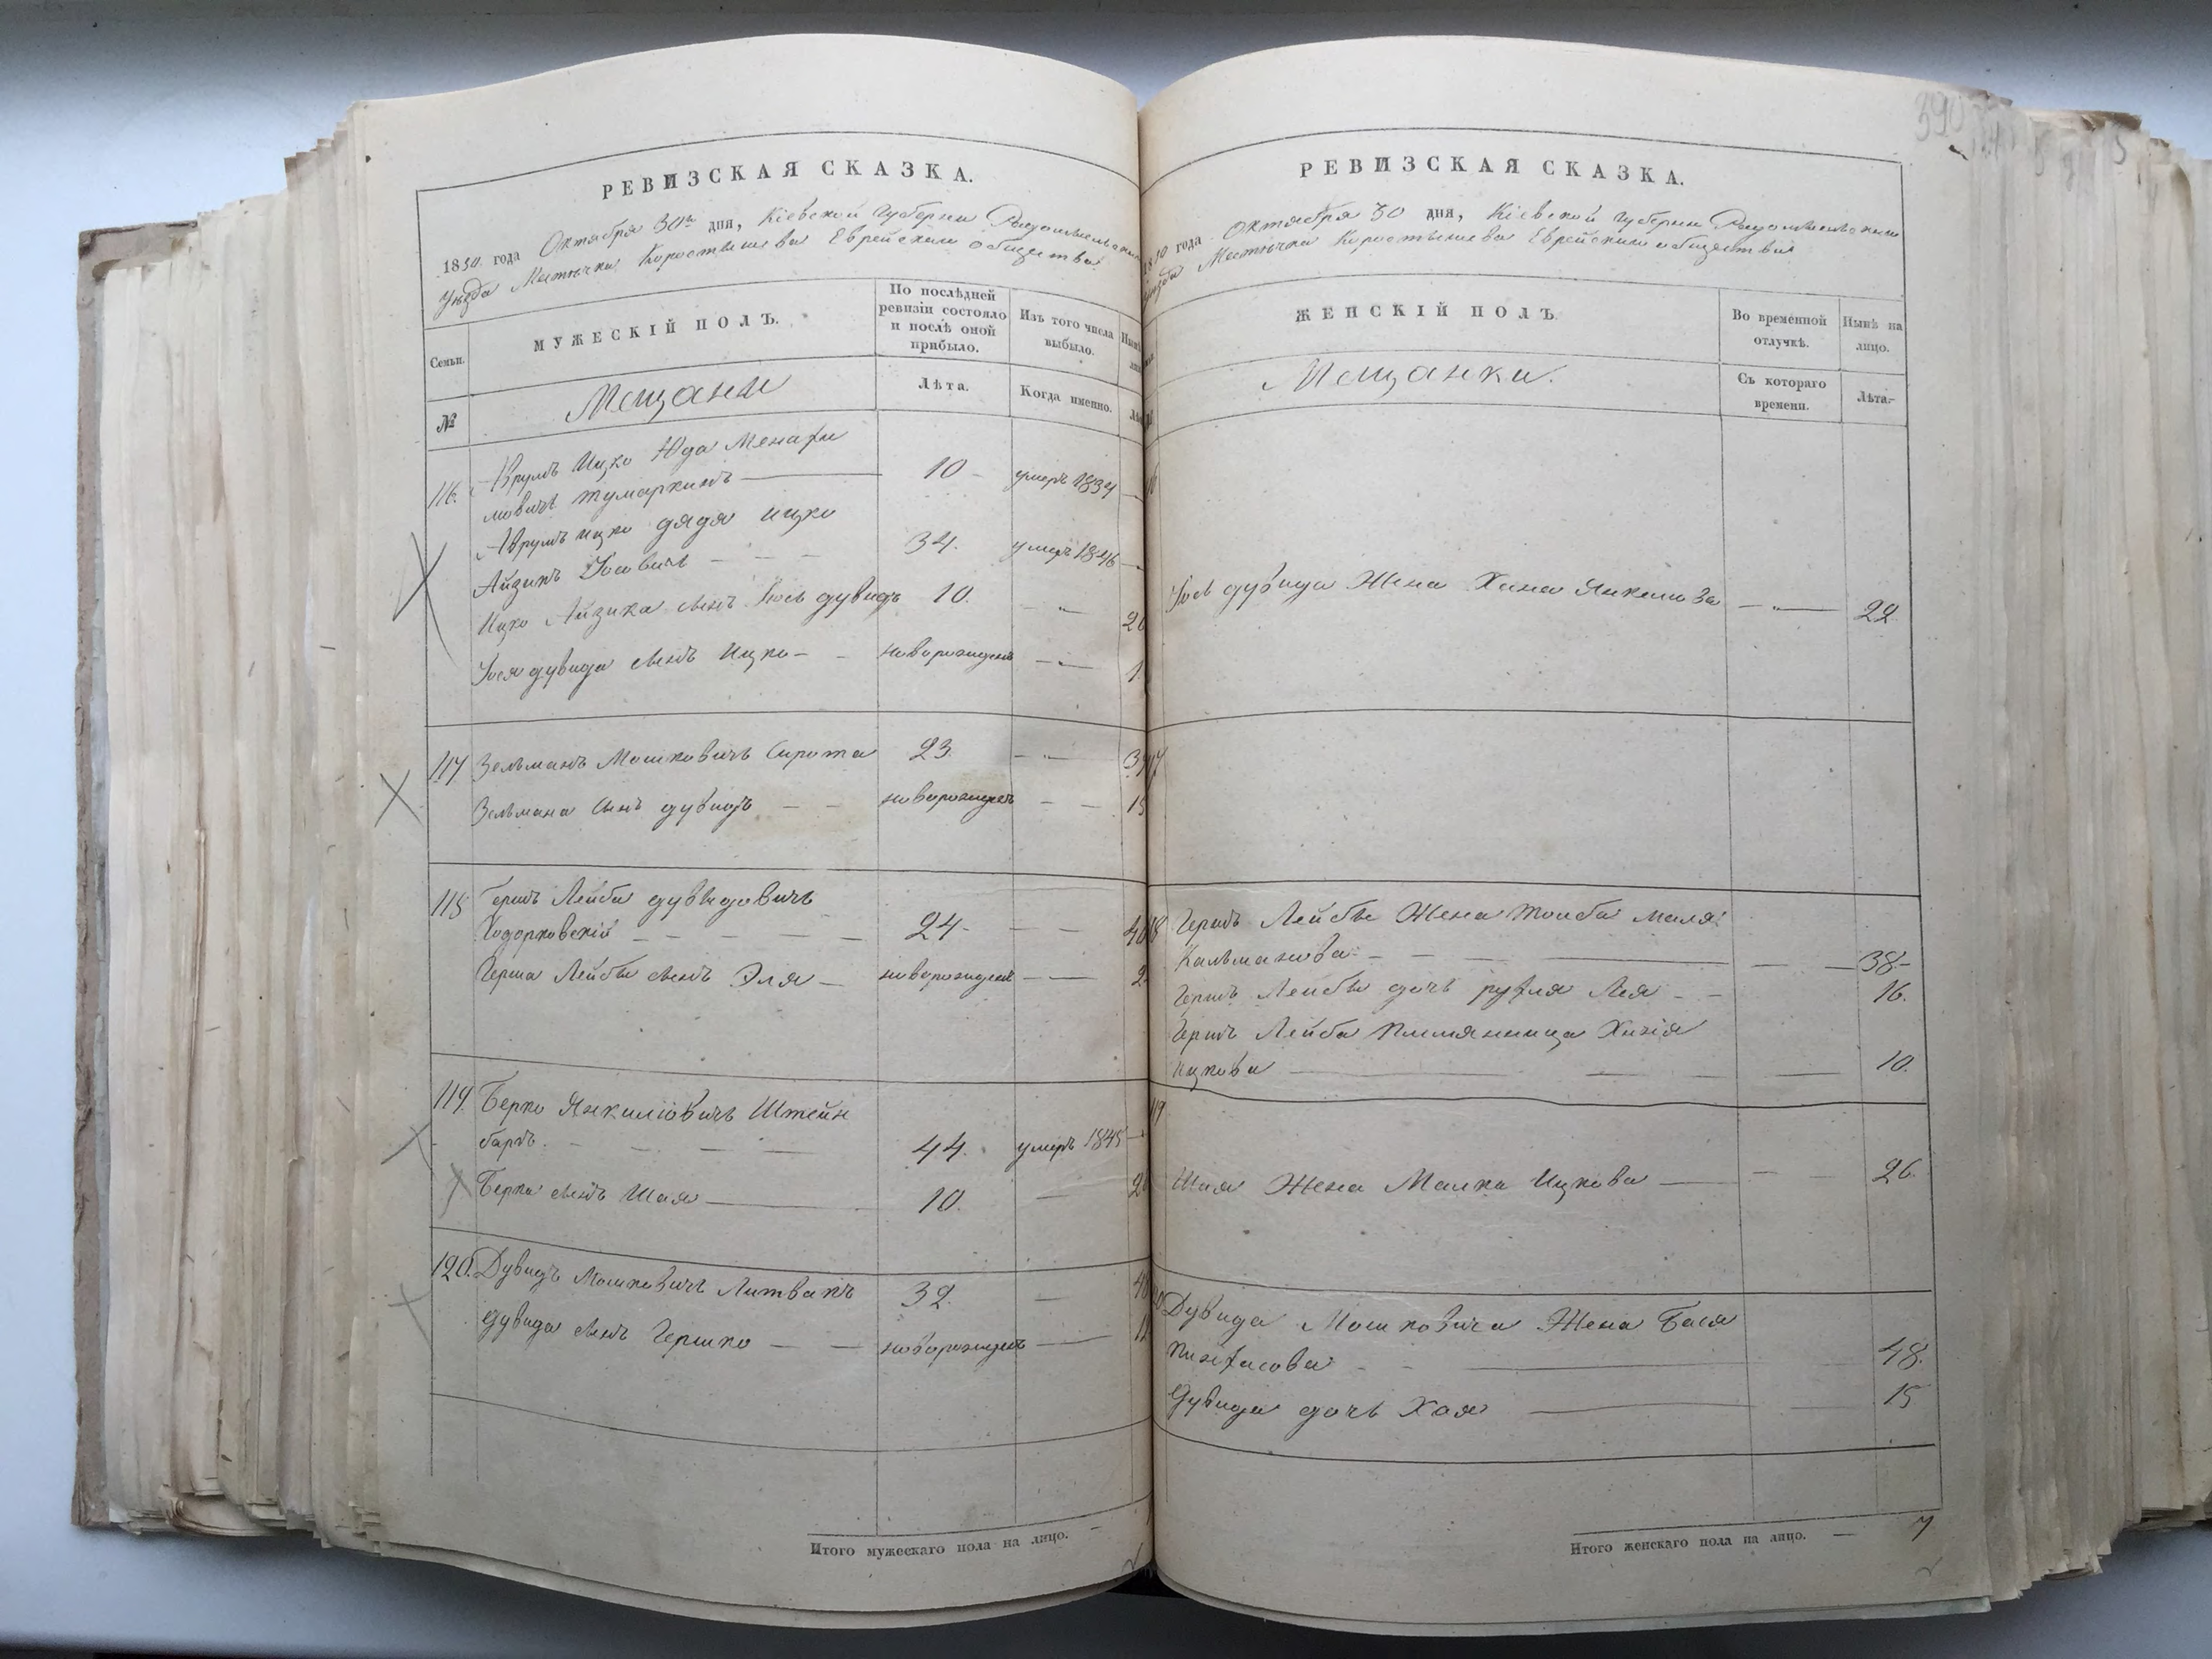 РЕВИЗСКАЯ СКАЗКА.
1850 года Октября 30го дня, Кіевской Губерніи Радомысльскаго
Уѣзда Мѣстечка Коростышева Еврейскаго общества
Семьи.
МУЖЕСКІЙ ПОЛЪ.
По послѣдней ревизіи состояло и послѣ оной прибыло.
Изъ того числа выбыло.
№
Мещани
Лѣта.
Когда именно.
116. Аврумъ Ицко Юда Менахи
мовичъ Тумаркинъ 10 умеръ 1834
Аврумъ Ицко дядя Ицко
Айзикъ Иосовичъ 34. умеръ 1846
Ицко Айзика сынъ Иось дувидъ 10. 26
Иося дувида сынъ Ицко новорожденъ 1
117 Зельманъ Мошковичъ Сирота 23. 39
Зельмана сынъ дувидъ новорожденъ 15
118 Гершъ Лейба дувидовичъ
Ходорковскій 24 40
Герша Лейбы сынъ Эля новорожденъ 2
119. Берко Янкиліовичъ Штейн
баргъ. 44. умеръ 1845
Берка сынъ Шая 10. 26
120. Дувидъ Мошковичъ Литвакъ 32. 48
дувида сынъ Гершко новорожденъ 12
Итого мужескаго пола на лицо.
390
РЕВИЗСКАЯ СКАЗКА.
1850 года Октября 30 дня, Кіевской Губерніи Радомысльскаго
Уѣзда Мѣстечка Коростышева Еврейскаго общества
ЖЕНСКІЙ ПОЛЪ
Во временной отлучкѣ.
Нынѣ на лицо.
Мещанки.
Съ котораго времени.
Лѣта.
Иось дувида Жена Хана Янкелова 22
118 Гершъ Лейбы Жена Тоиба Маля
Кальманова 38
Гершъ Лейбы дочь рухля Лея 16.
Гершъ Лейба племянница Хизія
Ицкова 10.
119
Шая Жена Малка Ицкова 26
120 Дувида Мошковича Жена Бася
Пинхасова 48.
Дувида дочь Хая 15
Итого женскаго пола на лицо. — 7